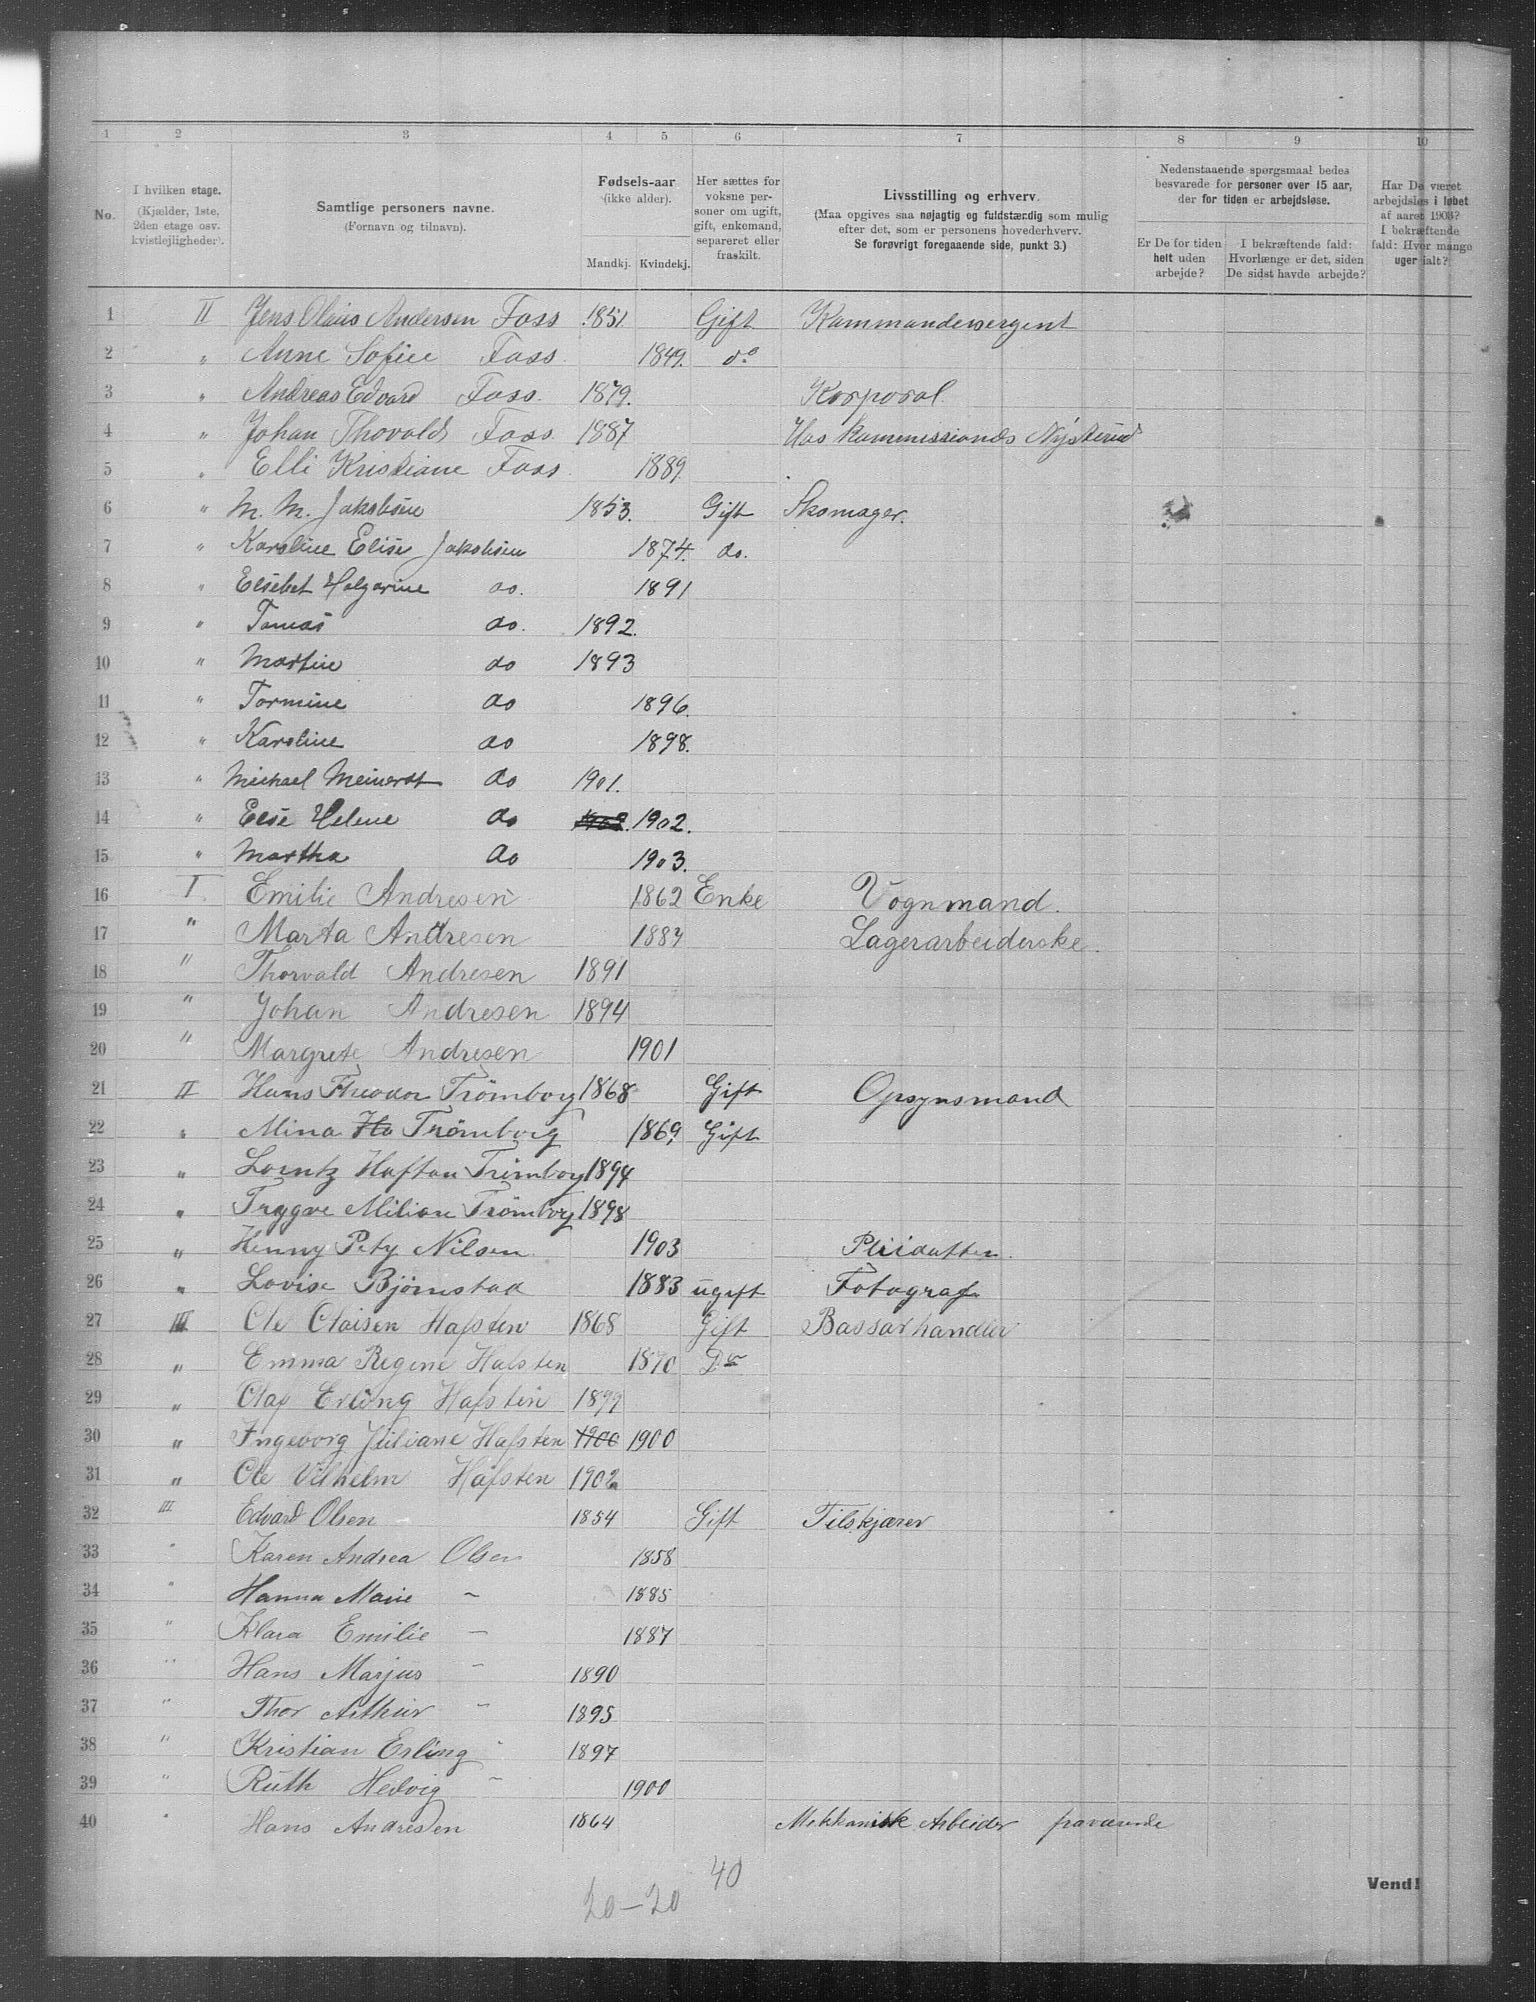 1 2 3 4 5 6 7 8 9 10
No.
I hvilken etage. (Kjælder, 1ste, 2den etage osv. kvistleiligheder).
Samtlige personers navne. (Fornavn og tilnavn).
Fødsels-aar (ikke alder). Mandkj. Kvindekj.
Her sættes for voksne personer om ugift, gift, enkemand, separeret eller fraskilt.
Livsstilling og erhverv. (Maa opgives saa nøjagtig og fuldstændig som mulig efter det, som er personens hovederhverv. Se forøvrigt foregaaende side, punkt 3.)
Nedenstaaende spørgsmaal bedes besvarede for personer over 15 aar, der for tiden er arbejdsløse.
Er De for tiden helt uden arbejde?
I bekræftende fald: Hvorlænge er det, siden De sidst havde arbejde?
Har De været arbejdsløs i løbet af aaret 1903? I bekræftende fald: Hvor mange uger ialt?
1 II Jens Olaus Andersen Foss 1851 Gift Kommandersergent
2 " Anne Sofie Foss 1849. do
3 " Andreas Edvard Foss. 1879. Korporal.
4 " Johan Thovald Foss 1887 Hos Kommissionds Nysterud
5 " Elli Kristiane Foss 1889.
6 " M. M. Jakobsen 1853. Gift Skomager.
7 " Karoline Elise Jakobsen 1874. do.
8 " Elsebet Holgerine do. 1891
9 " Tomas do. 1892.
10 " Martin do 1893
11 " Tormine do 1896.
12 " Karoline do 1898.
13 " Michael Meinerst do 1901.
14 " Else Helene do 1902. 1902.
15 " Martha do 1903.
16 I Emilie Andresen 1862 Enke Vognmand.
17 " Marta Andresen 1884 Lagerarbeiderske.
18 " Thorvald Andresen 1891
19 " Johan Andresen 1894
20 " Margrete Andresen 1901
21 II Hans Theodor Trömborg 1868 Gift Opsynsmand
22 " Mina Ha Trömborg 1869, Gift
23 " Lorntz Haftan Trömborg 1894
24 " Trygve Milian Trömborg 1898
25 " Henny Pety Nilsen 1903 Pleidatter.
26 " Lovise Bjørnstad 1883 ugift Fotograf
27 III Ole Olaisen Hafsten 1868 Gift Bassarhandler
28 " Emma Regine Hafsten 1870 Do
29 " Olaf Erling Hafsten 1899
30 " Ingeborg Juliane Hafsten 1900 1900
31 " Ole Vilhelm Hafsten 1902
32 III Edvard Olsen 1854 Gift Tilskjærer
33 " Karen Andrea Olsen 1858
34 " Hanna Marie - 1885
35 " Klara Emilie - 1887
36 " Hans Marjus - 1890
37 " Thor Arthur - 1895
38 " Kristian Erling - 1897
39 " Ruth Hedvig - 1900
40 " Hans Andresen 1864 Mekkanisk Arbeider fraværende
40
20-20
Vend!